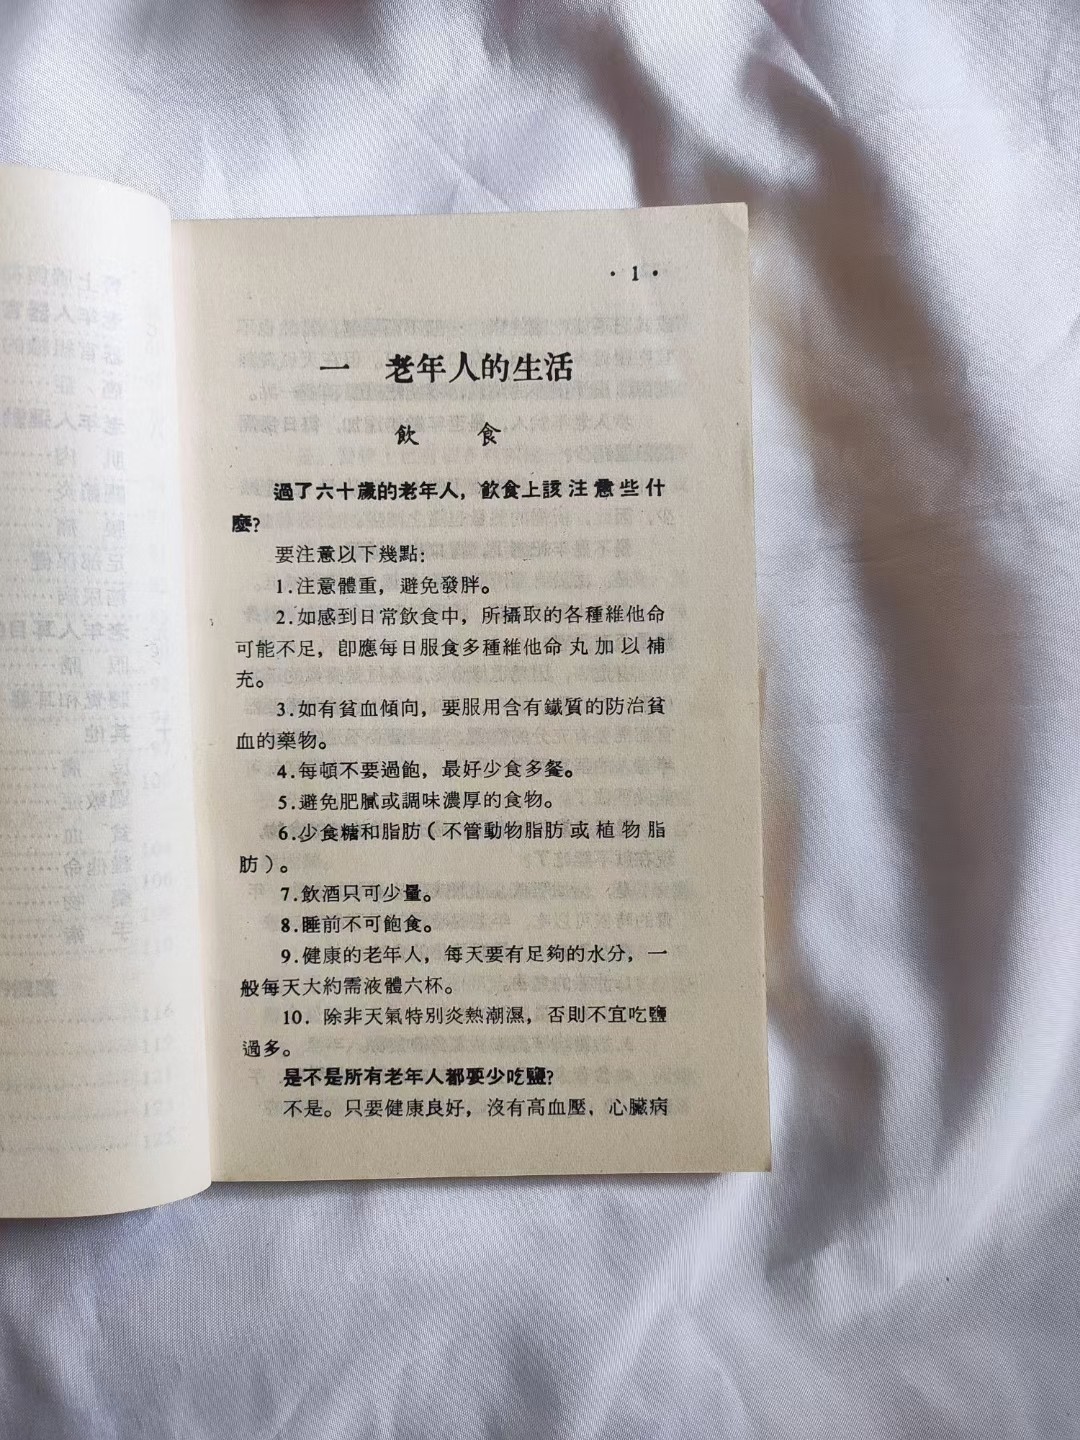 ·1·
一 老年人的生活
飲 食
過了六十歲的老年人，飲食上該注意些什
麼？
要注意以下幾點：
1.注意體重，避免發胖。
2.如感到日常飲食中，所攝取的各種維他命
可能不足，卽應每日服食多種維他命丸加以補
充。
3.如有貧血傾向，要服用含有鐵質的防治貧
血的藥物。
4.每頓不要過飽，最好少食多餐。
5.避免肥膩或調味濃厚的食物。
6.少食糖和脂肪（不管動物脂肪或植物脂
肪）。
7.飲酒只可少量。
8.睡前不可飽食。
9.健康的老年人，每天要有足夠的水分，一
般每天大約需液體六杯。
10．除非天氣特別炎熱潮濕，否則不宜吃鹽
過多。
是不是所有老年人都要少吃鹽？
不是。只要健康良好，沒有高血壓，心臟病